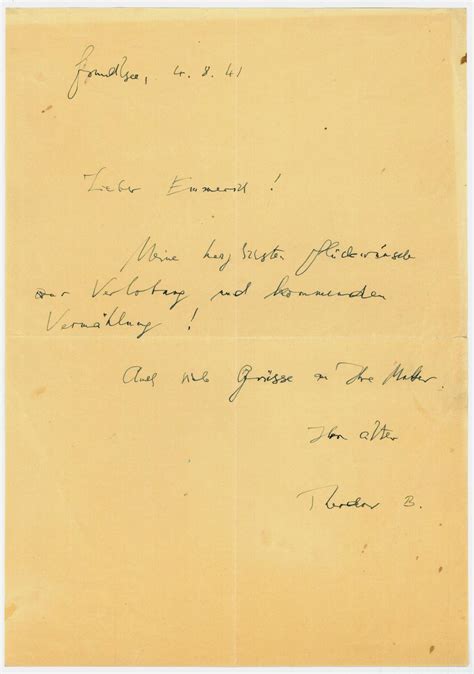 Grundlsee, 4. 8. 41
Lieber Emmerich!
Meine herzlichsten Glückwünsche
zur Verlobung und kommenden
Vermählung!
Auch viele Grüsse an Ihre Mutter.
Ihr alter
Theodor B.